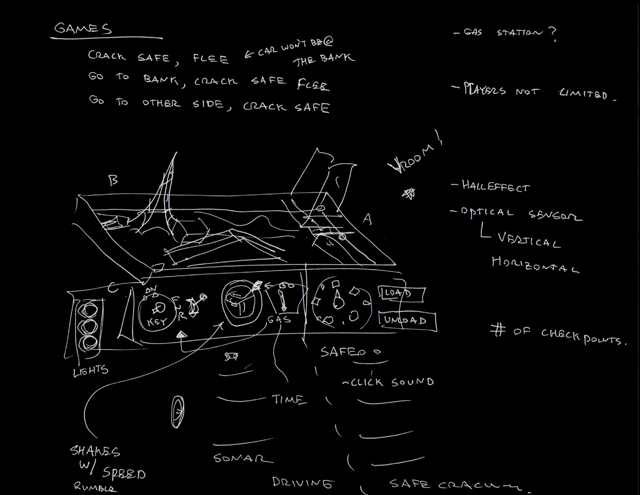 GAMES
CRACK SAFE, FLEE ← CAR WON'T BE @
THE BANK
GO TO BANK, CRACK SAFE FLEE
GO TO OTHER SIDE, CRACK SAFE
- GAS STATION?
- PLAYERS NOT LIMITED.
VROOM!
B
A
- HALL EFFECT
- OPTICAL SENSOR
VERTICAL
HORIZONTAL
C
ON
KEY
F
N
R
GAS
LOAD
UNLOAD
# OF CHECKPOINTS.
LIGHTS
SAFE
- CLICK SOUND
TIME
SHAKES
W/ SPEED
RUMBLE
SONAR
DRIVING
SAFE CRACKING